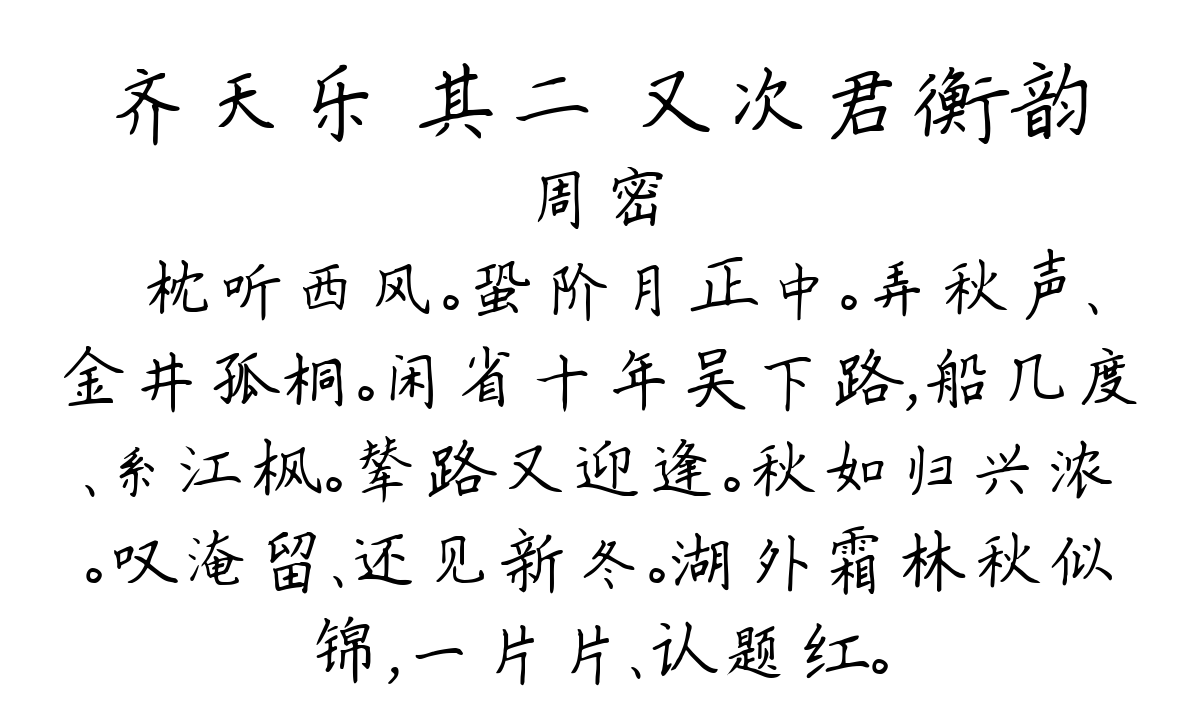 齐天乐 其二 又次君衡韵
周密
枕听西风。蛩阶月正中。弄秋声、
金井孤桐。闲省十年吴下路,船几度
、系江枫。辇路又迎逢。秋如归兴浓
。叹淹留、还见新冬。湖外霜林秋似
锦,一片片、认题红。